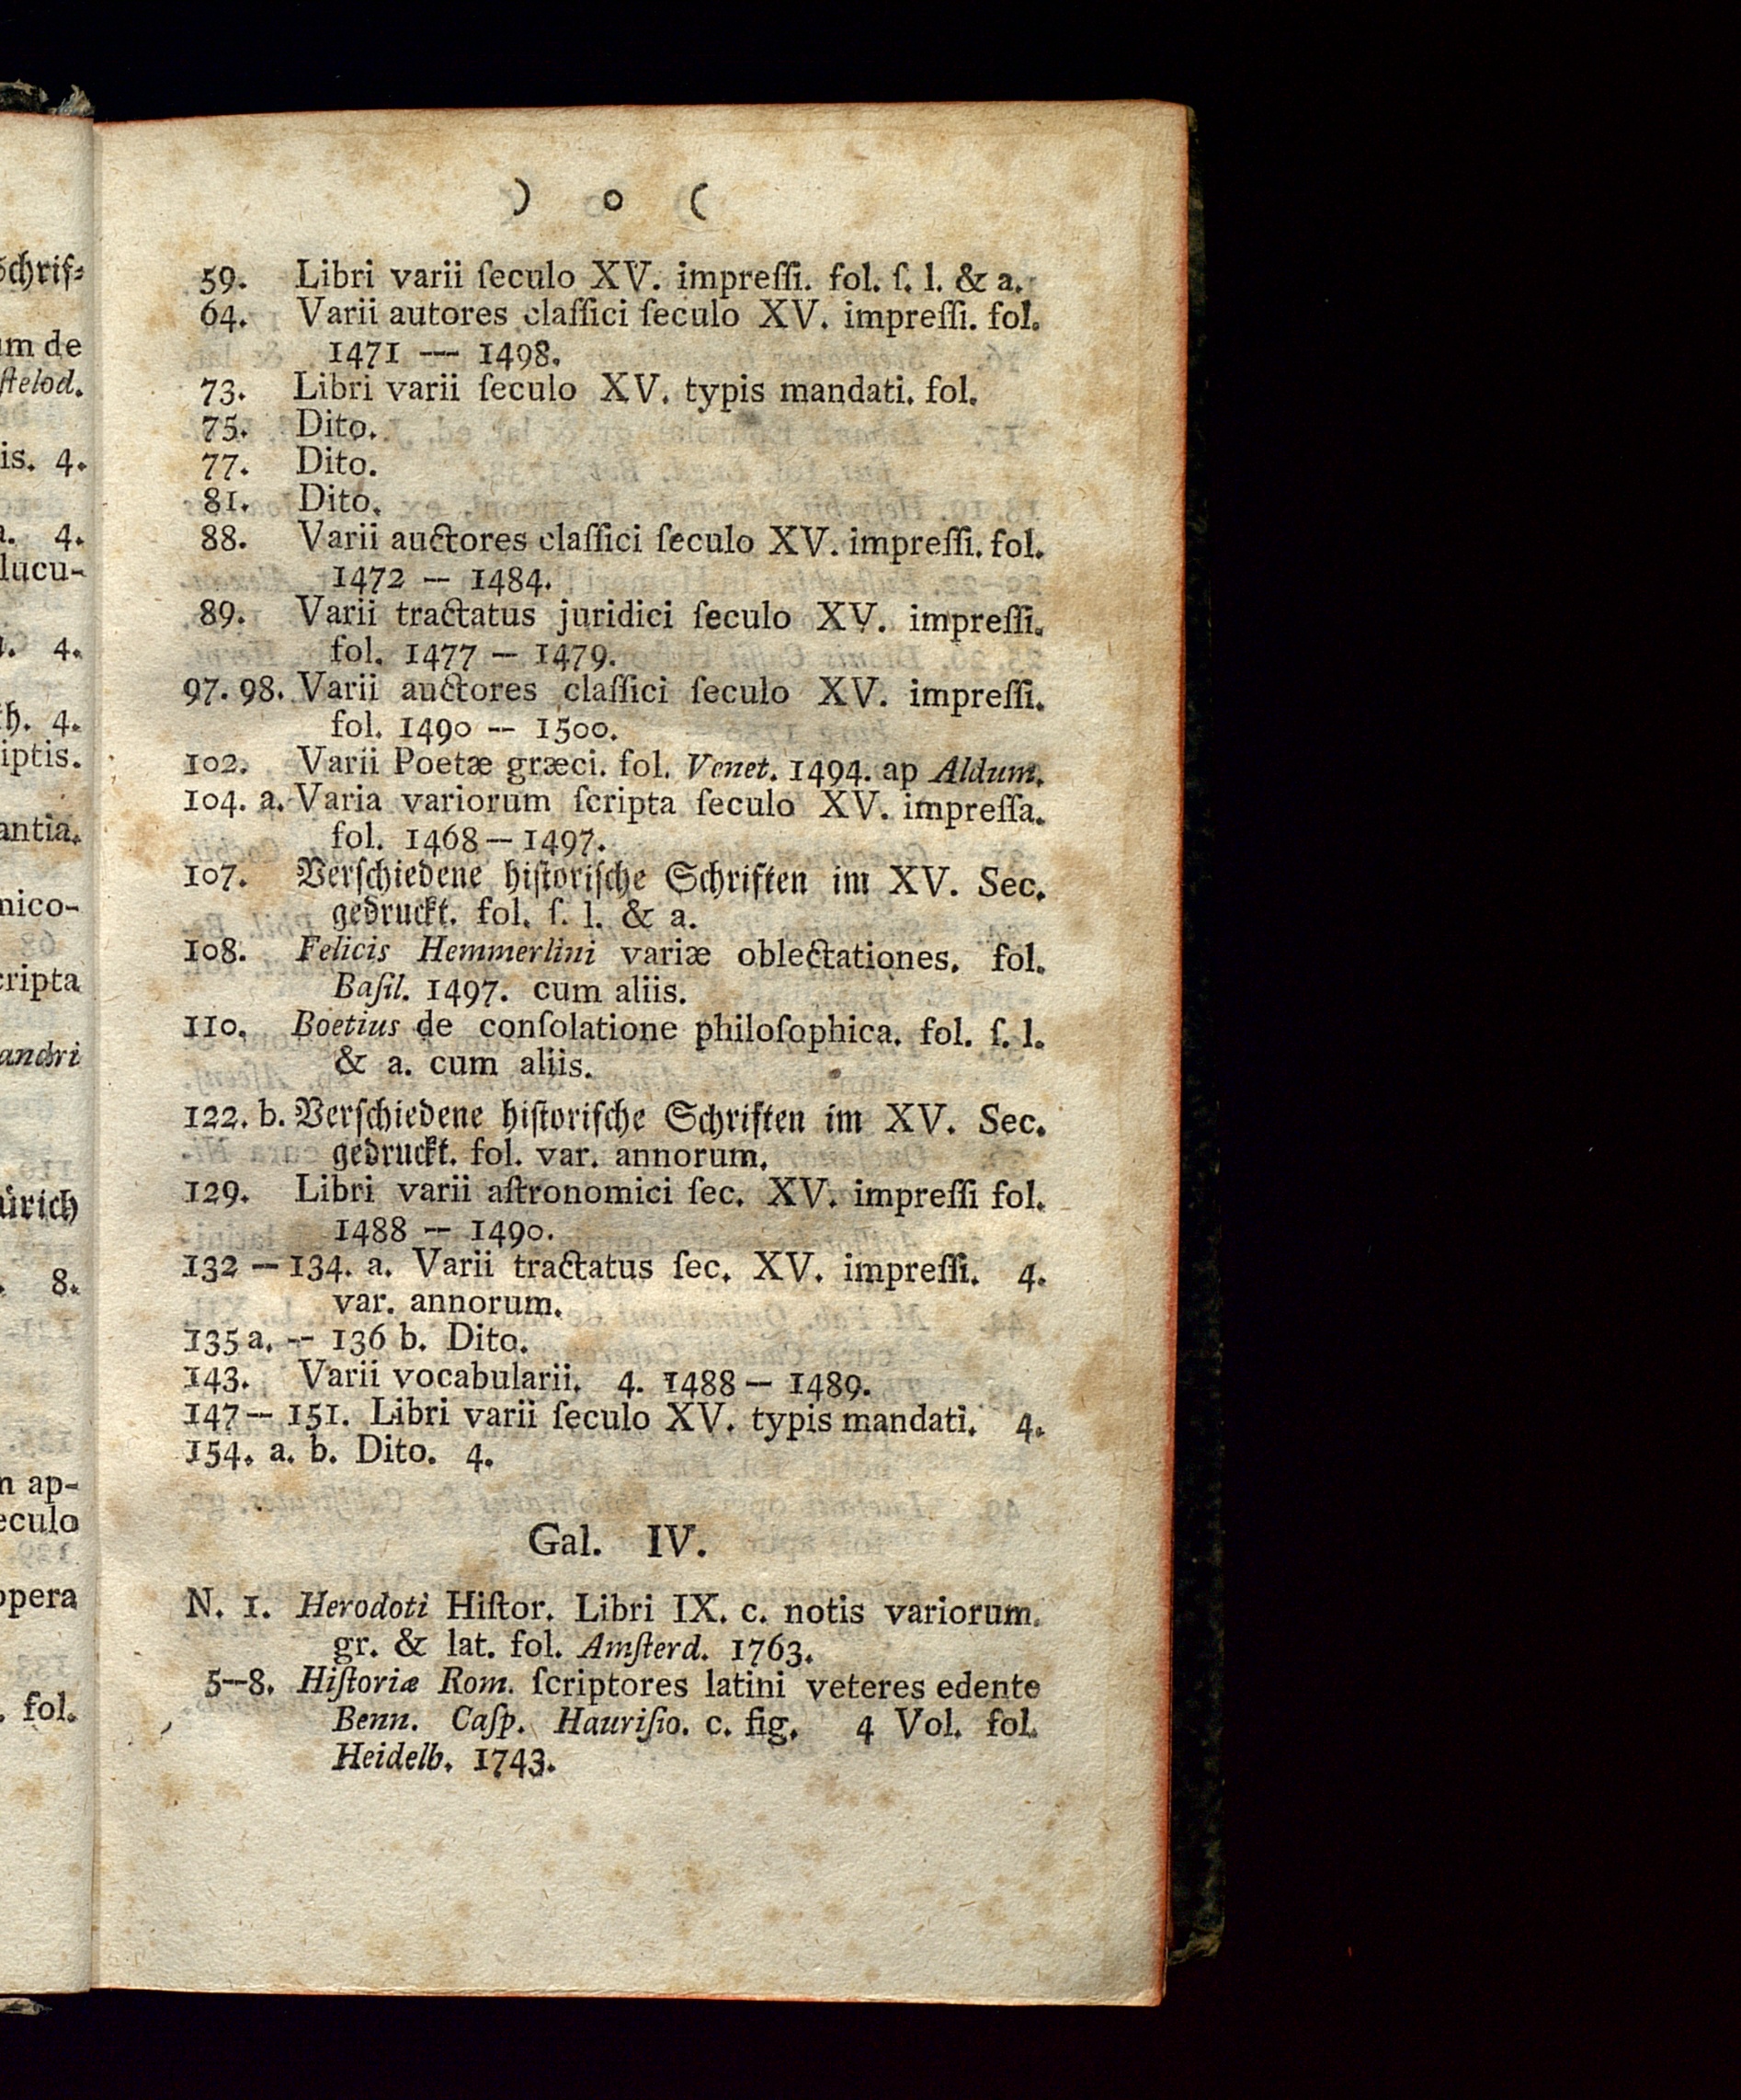 ) o (
59. Libri varii ſeculo XV. impreſſi. fol. ſ. l. & a.
64. Varii autores claſſici ſeculo XV. impreſſi. fol.
1471 — 1498.
73. Libri varii ſeculo XV. typis mandati. fol.
75. Dito.
77. Dito.
81. Dito.
88. Varii auctores claſſici ſeculo XV. impreſſi. fol.
1472 — 1484.
89. Varii tractatus juridici ſeculo XV. impreſſi.
fol. 1477 — 1479.
97. 98. Varii auctores claſſici ſeculo XV. impreſſi.
fol. 1490 — 1500.
102. Varii Poetæ græci. fol. Venet. 1494. ap Aldum.
104. a. Varia variorum ſcripta ſeculo XV. impreſſa.
fol. 1468 — 1497.
107. Verſchiedene hiſtoriſche Schriften im XV. Sec.
gedruckt. fol. ſ. l. & a.
108. Felicis Hemmerlini variæ oblectationes. fol.
Baſil. 1497. cum aliis.
110. Boetius de conſolatione philoſophica. fol. ſ. l.
& a. cum aliis.
122. b. Verſchiedene hiſtoriſche Schriften im XV. Sec.
gedruckt. fol. var. annorum.
129. Libri varii aſtronomici ſec. XV. impreſſi fol.
1488 — 1490.
132 — 134. a. Varii tractatus ſec. XV. impreſſi. 4.
var. annorum.
135 a. — 136 b. Dito.
143. Varii vocabularii. 4. 1488 — 1489.
147 — 151. Libri varii ſeculo XV. typis mandati. 4.
154. a. b. Dito. 4.
Gal. IV.
N. 1. Herodoti Hiſtor. Libri IX. c. notis variorum.
gr. & lat. fol. Amſterd. 1763.
5—8. Hiſtoriæ Rom. ſcriptores latini veteres edente
Benn. Caſp. Hauriſio. c. fig. 4 Vol. fol.
Heidelb. 1743.